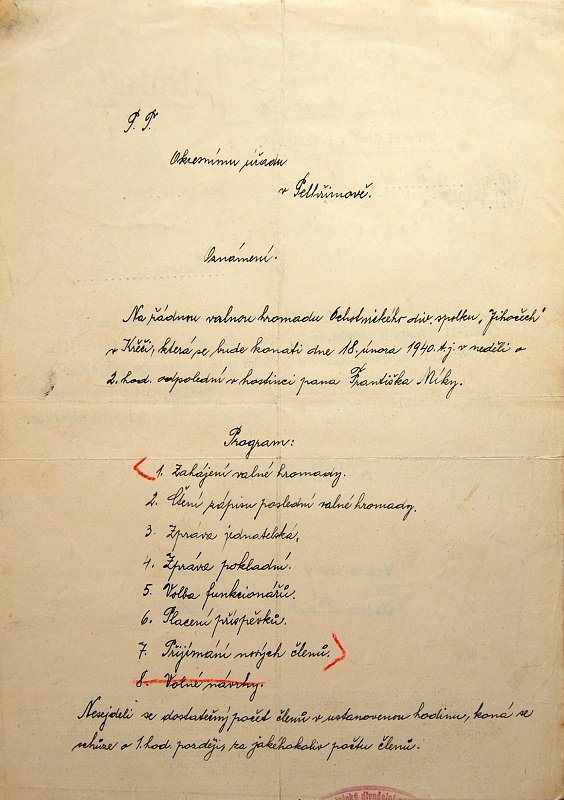 P. T.
Okresnímu úřadu
v Pelhřimově.
Oznámení.
Na řádnou valnou hromadu Ochotnického div. spolku „Jihočech"
v Křeči, která se bude konati dne 18. února 1940 t.j. v neděli o
2. hod. odpolední v hostinci pana Františka Míky.
Program:
1. Zahájení valné hromady.
2. Čtení zápisu poslední valné hromady.
3. Zpráva jednatelská.
4. Zpráva pokladní.
5. Volba funkcionářů.
6. Placení příspěvků.
7. Přijímání nových členů.
8. Volné návrhy.
Nesejdeli se dostatečný počet členů v ustanovenou hodinu, koná se
schůze o 1. hod. později za jakéhokoliv počtu členů.
divadelní